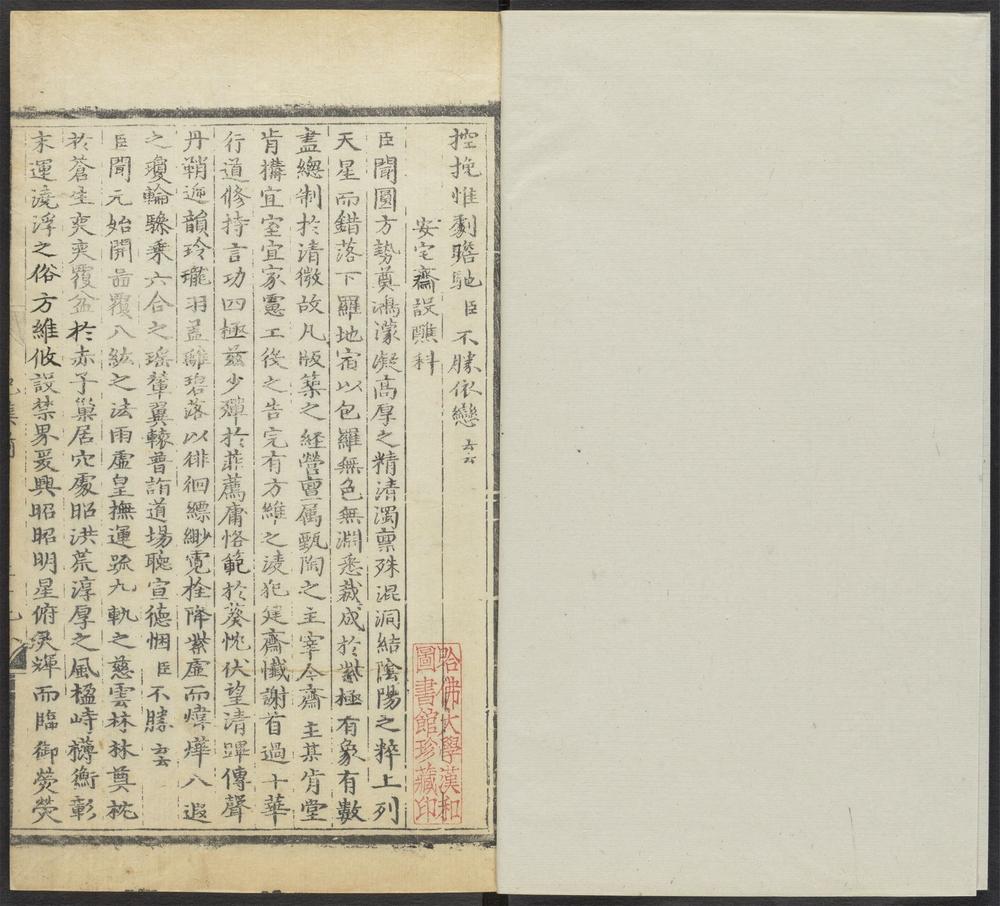 控挽惟劇瞻馳臣不勝依戀云云
安宅齋設醮科
臣聞圓方勢奠鴻濛凝高厚之精清濁禀殊混洞結陰陽之粹上列
天星而錯落下羅地宿以包羅無色無淵悉裁成於紫極有象有數
盡總制於清微故凡版築之經營亶属甄陶之主宰今齋主某肯堂
肯搆宜室宜家憲工役之告完有方維之凌犯筵齋懺謝首過十華
行道修持言功四極兹少殫於菲薦庸恪範於葵忱伏望清蹕傳聲
丹鞘迎韻玲瓏羽盖離碧落以徘徊縹緲霓栓降紫虛而煒燁八遐
之瓊輪驂乗六合之瑶輦翼轅普詣道場聽宣德悃臣不勝云云
臣聞元始開啚覆八紘之法雨虛皇撫運䟽九軌之慈雲林林奠枕
於蒼生奕奕覆盆於赤子巢居穴處昭洪荒淳厚之風楹峙櫨衡彰
末運澆浮之俗方維攸設禁界爰興昭昭明星俯㷀輝而臨御熒熒
哈佛大學漢和
圖書館珍藏印